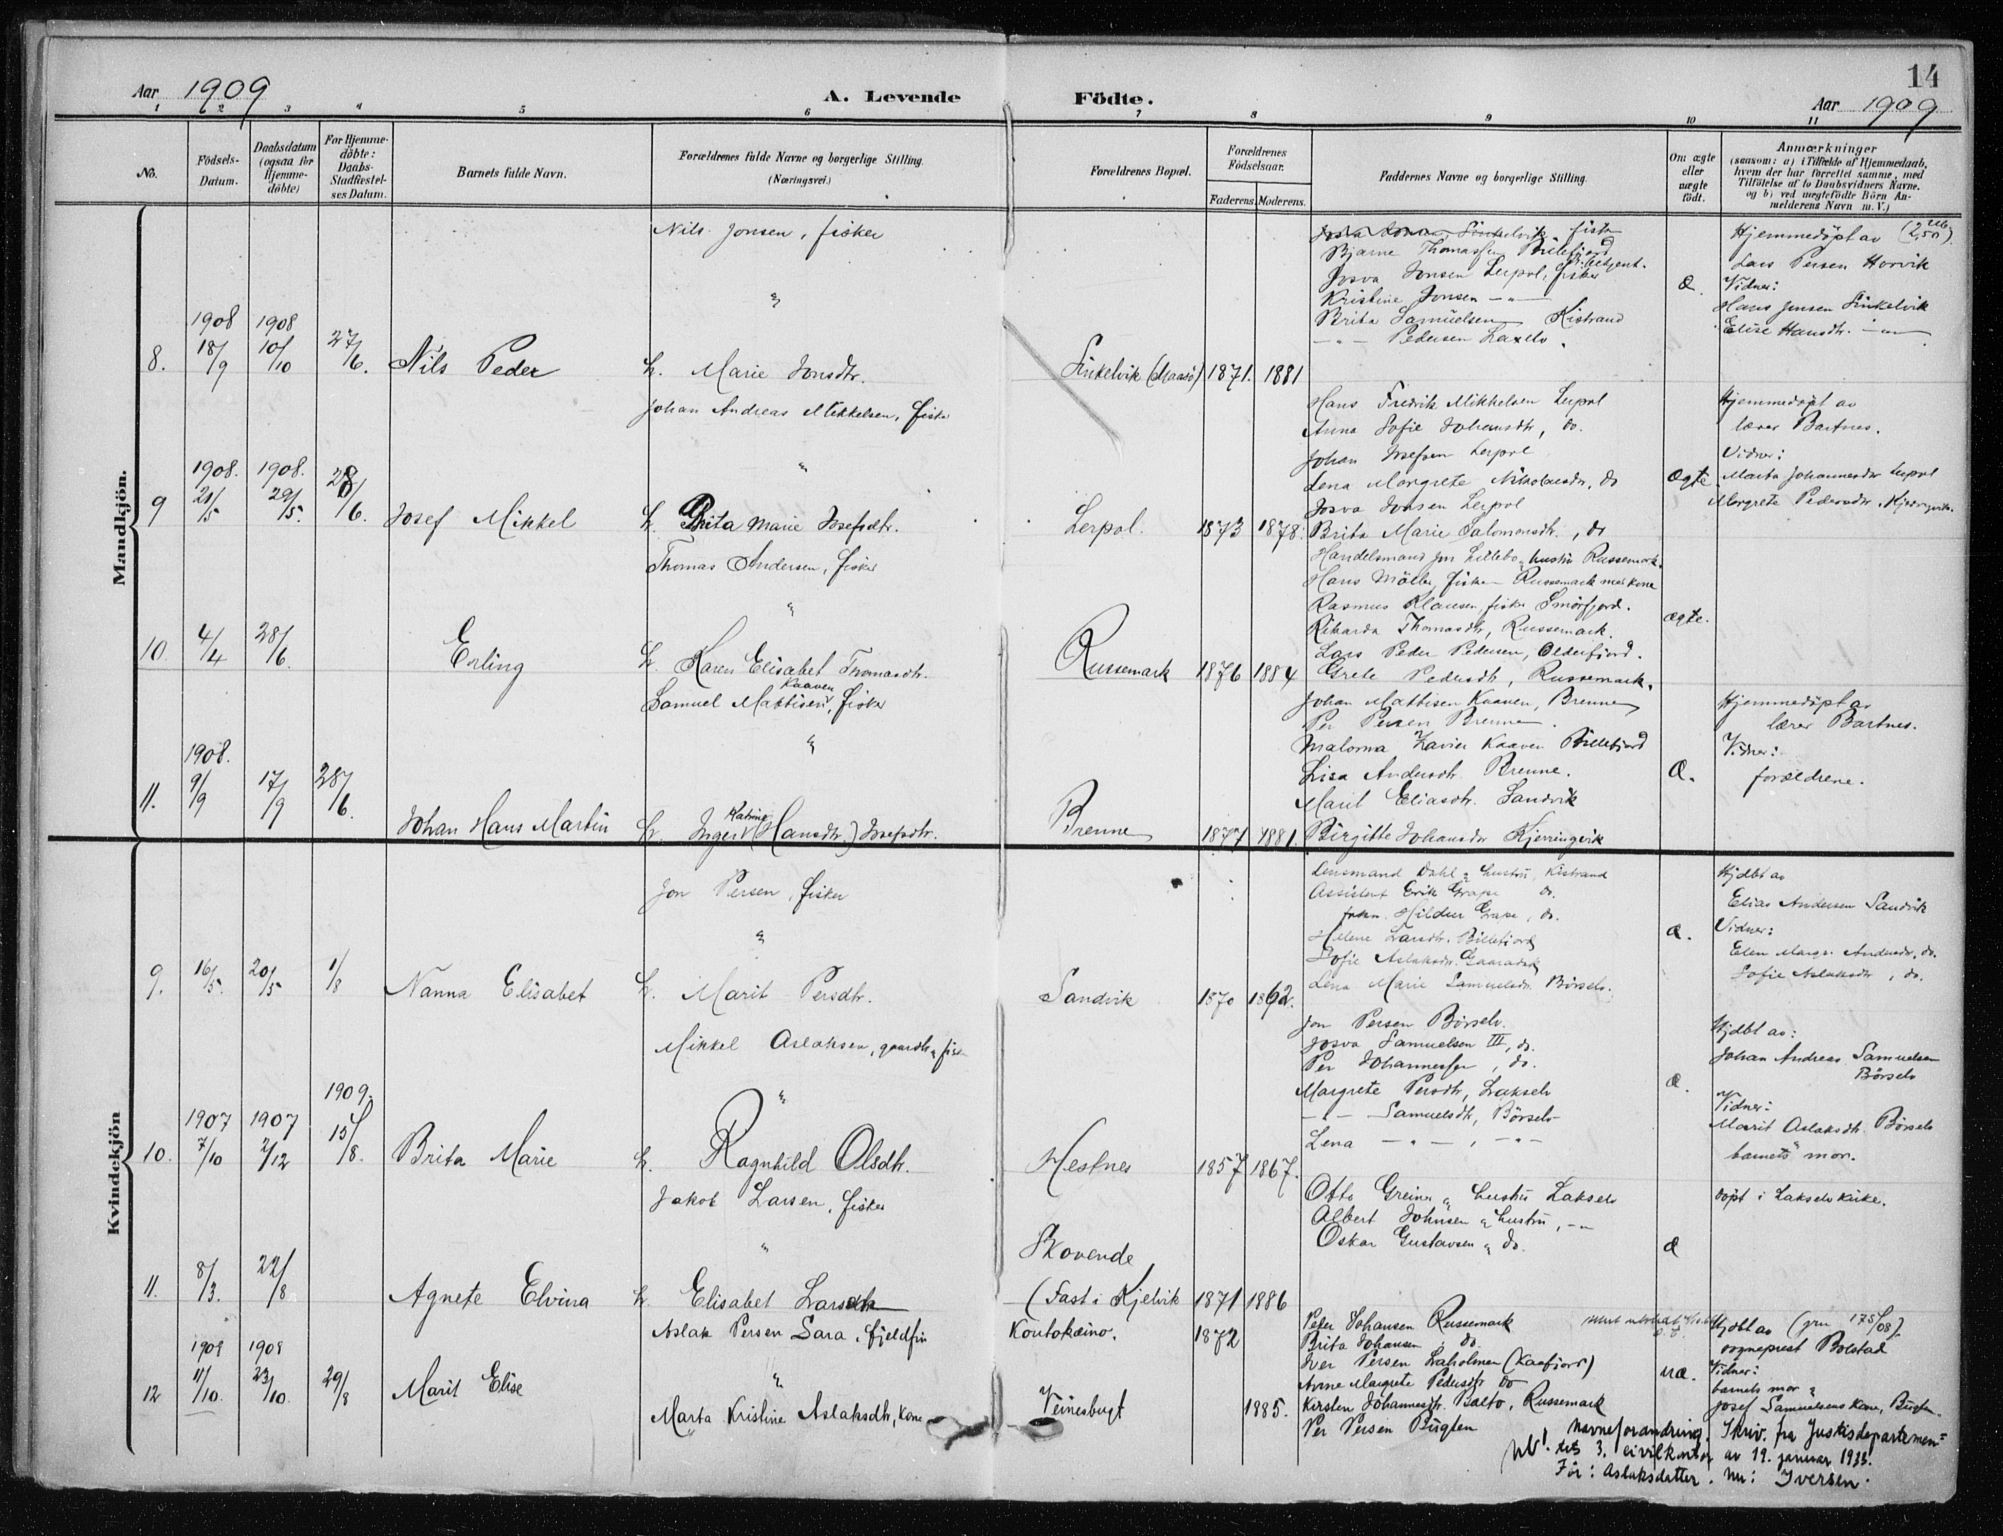 14
Aar 1909
A. Levende Födte.
Aar 1909
1 2 3 4 5 6 7 8 9 10 11
No.
Födsels-Datum.
Daabsdatum (ogsaa for Hjemmedöbte)
For Hjemmedöbte: Daabs-Stadfæstelses Datum.
Barnets fulde Navn.
Forældrenes fulde Navne og borgerlige Stilling.
(Næringsvei.)
Forældrenes Bopæl.
Forældrenes Födselsaar.
Faderens. Moderens.
Faddernes Navne og borgerlige Stilling.
Om ægte eller uægte födt.
Anmærkninger
(saasom: a) i Tilfælde af Hjemmedaab, hvem der har forrettet samme, med Tilföielse af to Daabsvidners Navne, og b) ved uægtefödte Börn Anmelderens Navn m. V.)
Mandkjön.
Nils Jonsen, fisker
"
8. 1908 18/9 1908 10/10 27/6. Nils Peder h. Marie Jonsdtr. Finkelvik (Maasö) 1871. 1881
Bjarne Thomassen Billefjord
Josva Jonsen Lerpol, fisker
Kristine Jonsen -"-
Brita Samuelsen Kistrand
-"- Pedersen Laxelv.
Æ.
Hjemmedöpt av
Lars Persen Horvik
Vidner:
Hans Jensen Finkelvik
Elise Hansdtr. -"-
Johan Andreas Mikkelsen, fisker
"
9 1908. 21/5 1908. 29/5. 28/6. Josef Mikkel h. Brita Marie Josefsdtr. Lerpol. 1873 1878.
Hans Fredrik Mikkelsen Lerpol
Anna Sofie Johansdtr, do.
Johan Josefsen Lerpol
Lena Margrete Nikolausdtr, do
Josva Jonsen Lerpol
Brita Marie Salomonsdtr., do
ægte
Hjemmedöpt av
lærer Bartnes.
Vidner:
Marta Johannesdtr Lerpol
Margrete Pedersdtr. Kjerringvik.
Thomas Andersen, fisker
"
10. 4/4 28/6. Erling h. Karen Elisabet Thomasdtr. Russemark 1876 1884
Handelsmand Lillebo & hustru Russemark.
Hans Möller, fisker Russemark med kone
Rasmus Klausen, fisker Smörfjord.
Rikarda Thomasdtr, Russemark.
Lars Peder Pedersen, Olderfjord.
Grete Pedersdtr, Russemark.
ægte.
Samuel Mattisen Kaaven, fisker
"
11. 1908. 9/9 17/9 28/6. Johan Hans Martin h. Inger Katrine (Hansdtr.) Josefsdtr. Brenne 1877 1881.
Johan Mattisen Kaaven, Brenne
Per Persen Brenne.
Malorna Xavier Kaaven Billefjord
Lisa Andersdtr. Brenne.
Marit Eliasdtr. Sandvik
Birgitte Johansdtr Kjerringvik
Æ.
Hjemmedöpt av
lærer Bartnes.
Vidner:
forældrene.
Kvindekjön
Jon Persen, fisker
"
9. 16/5. 20/5 1/8 Nanna Elisabet h. Marit Persdtr. Sandvik 1870 1862.
Lensmand Dahl & hustru, Kistrand
Assistent Erik Grape do.
frøken Hildur Grape, do.
Helene Larsdtr. Billefjord
Sofie Aslaksdtr.
Lena Marie Samuelsdtr Börselv.
Æ.
Hjdbt av
Elias Andersen Sandvik
Vidner:
Ellen Margr. Andersdtr, do.
Sofie Aslaksdtr, do.
Mikkel Aslaksen, gaardbr. & fisker
"
10. 1907 7/10 1907 2/12 1909. 15/8. Brita Marie h. Ragnhild Olsdtr. Hestnes 1857 1867.
Jon Persen Börselv.
Josva Samuelsen III, do.
Per Johannessen, do.
Margrete Persdtr, Lakselv
-"- Samuelsdtr, Börselv
Lena -"-, -"-
Æ.
Hjdbt av:
Johan Andreas Samuelsen
Börselv
Vidner:
Marit Aslaksdtr. Börselv
barnets mor.
Jakob Larsen, fisker
"
11. 8/3. 22/8 Agnete Elvina h. Elisabet Larsdtr Skovende
(Fast i Kjelvik 1871 1886
Otto Greiner & hustru Lakselv
Albert Johnsen & hustru, -"-
Oskar Gustavsen & do.
Æ
döpt i Lakselv kirke.
Aslak Persen Sara, fjeldfin Koutokæino. 1872
"
12 1908 11/10. 1908 23/10. 29/8 Marit Elise Marta Kristine Aslaksdtr, kone Veinesbugt 1885.
Peter Johansen Russemark
Brita Johansen do.
Iver Persen Laholmen (Kaafjord)
Anne Margrete Pedersdtr do
Kirsten Johannesdtr. Balto, Russemark
Per Persen Bugten
uæ.
Hjdbt av (grn 175/08).
sogneprest Bolstad
Vidner:
barnets mor &
Josef Samuelsens kone, Bugten.
NB! Navneforandring. Skriv. fra Justisdepartemen=
tets 3. civilkontor av 19. januar 1933.
Før: Aslaksdatter. Nu: Iversen.